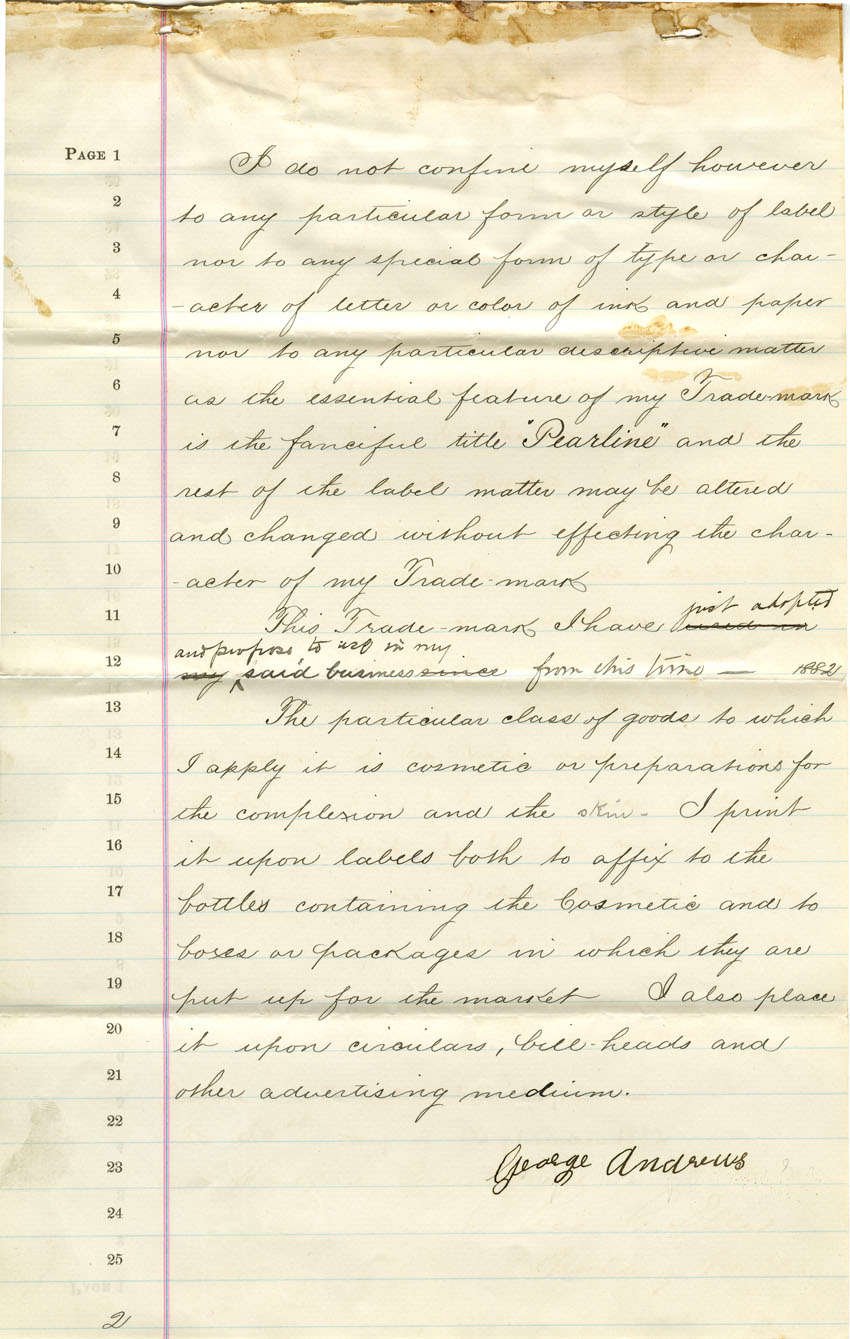 PAGE 1 I do not confine myself however
2 to any particular form or style of label
3 nor to any special form of type or char-
4 -acter of letter or color of ink and paper
5 nor to any particular descriptive matter
6 as the essential feature of my Trade-mark
7 is the fanciful title "Pearline" and the
8 rest of the label matter may be altered
9 and changed without effecting the char-
10 -acter of my Trade-mark
just adopted
11 This Trade-mark I have used in
and propose to use in my
12 my said business since from this time — 1882
13 The particular class of goods to which
14 I apply it is cosmetic or preparations for
15 the complexion and the skin - I print
16 it upon labels both to affix to the
17 bottles containing the Cosmetic and to
18 boxes or packages in which they are
19 put up for the market I also place
20 it upon circulars, bill-heads and
21 other advertising medium.
22
23 George Andrews
24
25
2